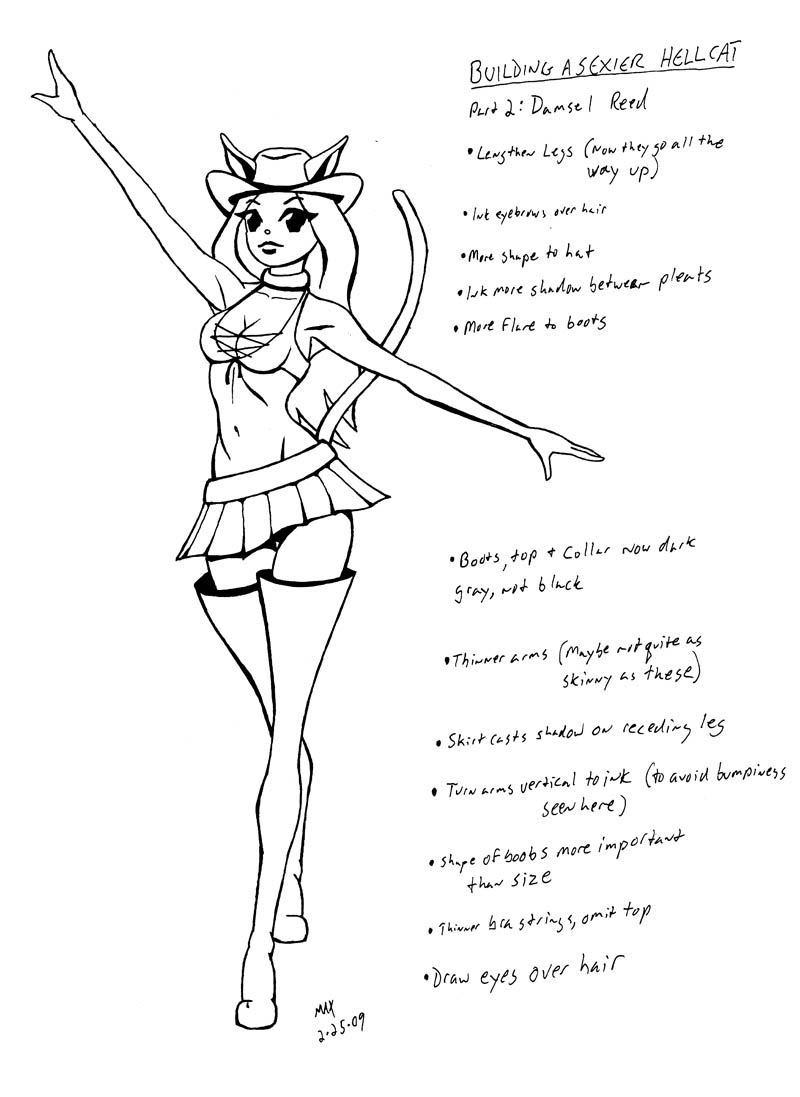 BUILDING A SEXIER HELLCAT
Part 2: Damsel Reed
• Lengthen Legs (Now they go all the
way up)
• Ink eyebrows over hair
• More shape to hat
• Ink more shadow between pleats
• More Flare to boots
• Boots, top + Collar now dark
gray, not black
• Thinner arms (Maybe not quite as
skinny as these)
• Skirt casts shadow on receding leg
• Turn arms vertical to ink (to avoid bumpiness
seen here)
• Shape of boobs more important
than size
• Thinner bra strings, omit top
• Draw eyes over hair
MAX
2.25.09